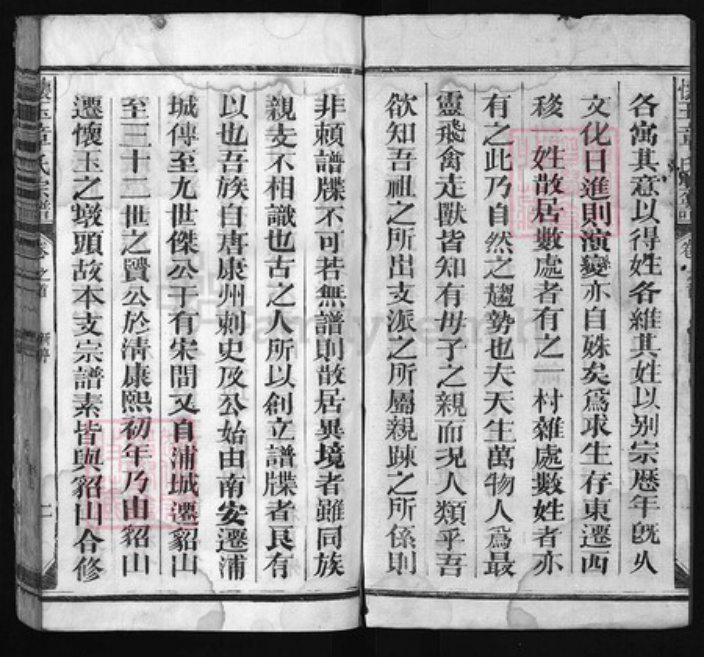 各寓其意以得姓各維其姓以別宗歷年旣久
文化日進則演變亦自殊矣爲求生存東遷西
移一姓散居數處者有之一村雜處數姓者亦
有之此乃自然之趨勢也夫天生萬物人爲最
靈飛禽走獸皆知有母子之親而况人類乎吾
欲知吾祖之所出支派之所屬親踈之所係則
非賴譜牒不可若無譜則散居異境者雖同族
親支不相識也古之人所以創立譜牒者良有
以也吾族自唐康州刺史及公始由南安遷浦
城傳至九世傑公于有宋間又自浦城遷貂山
至三十二世之贒公於淸康熙初年乃由貂山
遷懷玉之墩頭故本支宗譜素皆與貂山合修
懷玉章氏宗譜
卷之首
新序
二